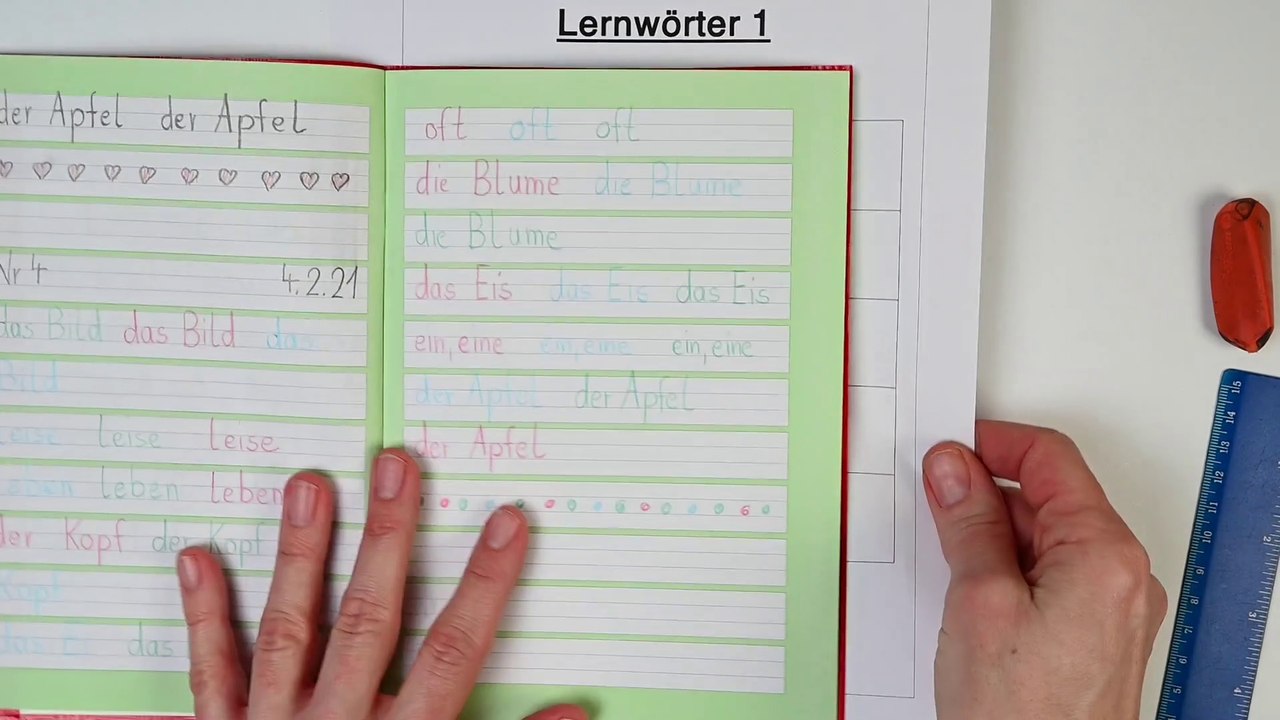 Lernwörter 1
der Apfel der Apfel
Nr 4 4.2.21
das Bild das Bild das
Bild
leise leise leise
leben leben leben
der Kopf der Kopf
Kopf
das Ei das
oft oft oft
die Blume die Blume
die Blume
das Eis das Eis das Eis
ein, eine ein, eine ein, eine
der Apfel der Apfel
der Apfel
15
14
13
12
11
10
9
8
7
6
5